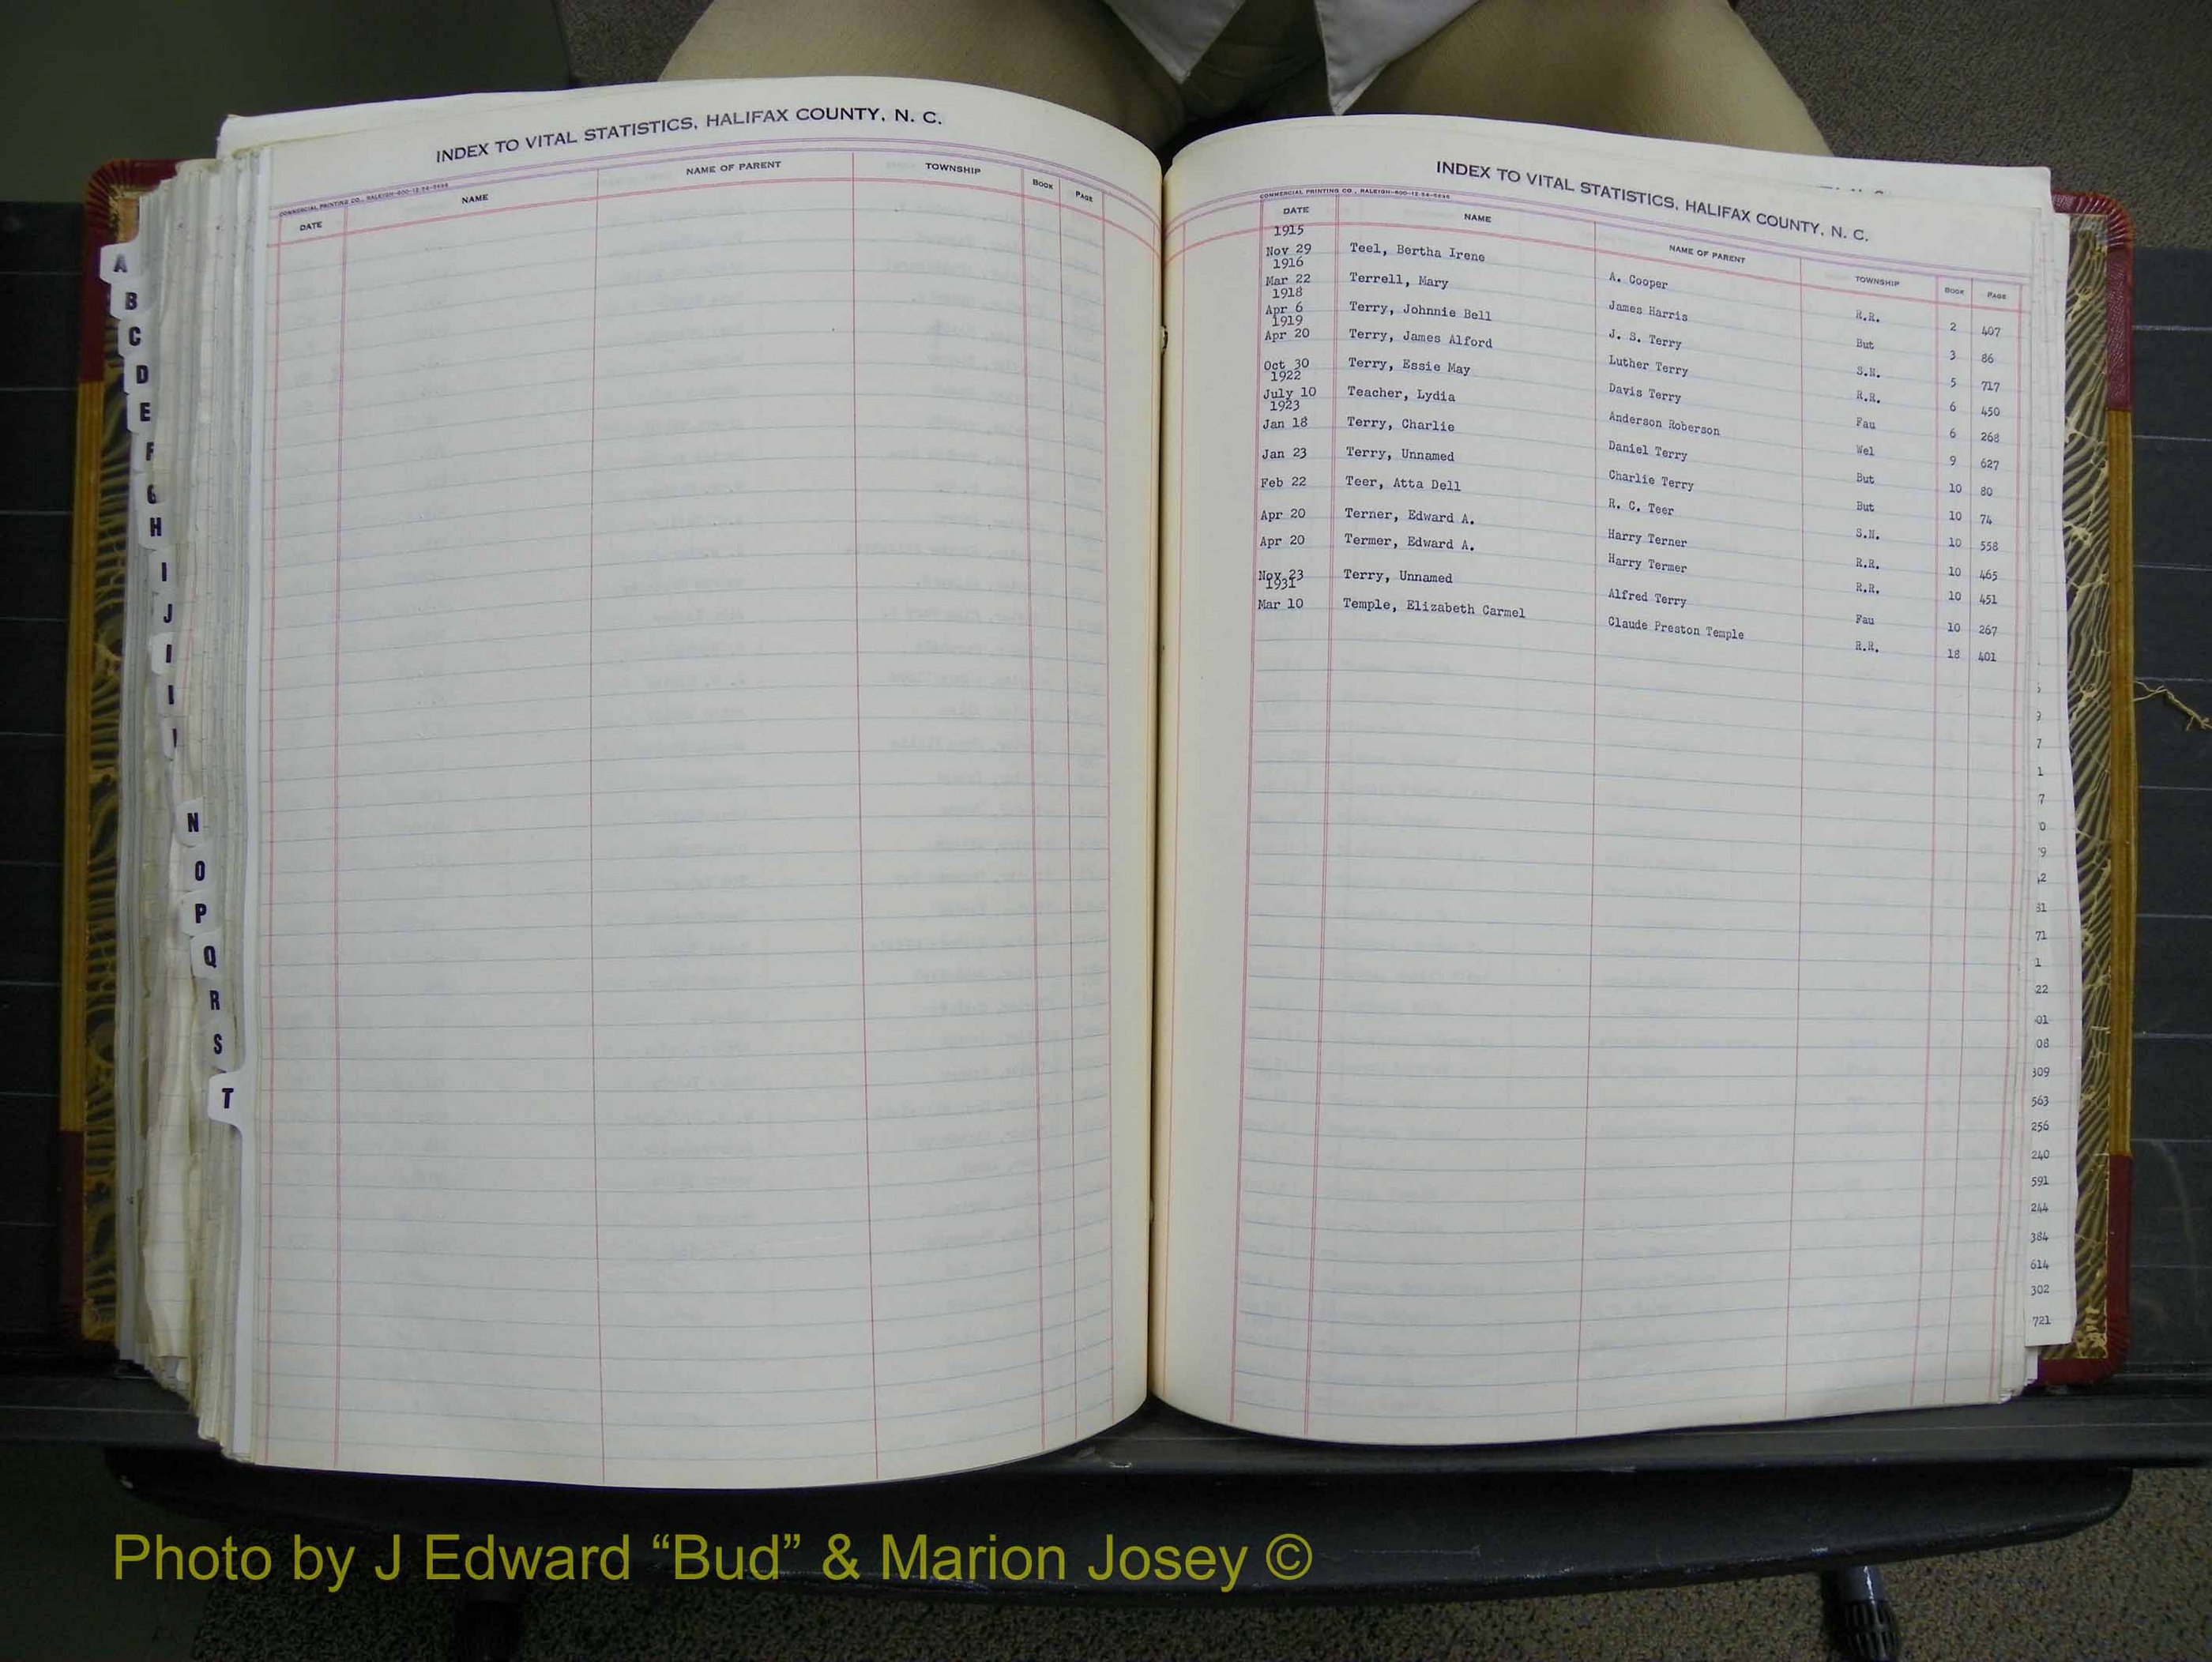 INDEX TO VITAL STATISTICS, HALIFAX COUNTY, N. C.
COMMERCIAL PRINTING CO., RALEIGH-600-12-54-5698
DATE NAME NAME OF PARENT TOWNSHIP BOOK PAGE
A
B
C
D
E
F
G
H
I
J
N
O
P
Q
R
S
T
INDEX TO VITAL STATISTICS, HALIFAX COUNTY, N. C.
COMMERCIAL PRINTING CO., RALEIGH-600-12-54-5698
DATE NAME NAME OF PARENT TOWNSHIP BOOK PAGE
1915
Nov 29 Teel, Bertha Irene A. Cooper R.R. 2 407
1916
Mar 22 Terrell, Mary James Harris But 3 86
1918
Apr 6 Terry, Johnnie Bell J. S. Terry S.N. 5 717
1919
Apr 20 Terry, James Alford Luther Terry R.R. 6 450
Oct 30 Terry, Essie May Davis Terry Fau 6 268
1922
July 10 Teacher, Lydia Anderson Roberson Wel 9 627
1923
Jan 18 Terry, Charlie Daniel Terry But 10 80
Jan 23 Terry, Unnamed Charlie Terry But 10 74
Feb 22 Teer, Atta Dell R. C. Teer S.N. 10 558
Apr 20 Terner, Edward A. Harry Terner R.R. 10 465
Apr 20 Termer, Edward A. Harry Termer R.R. 10 451
Nov 23 Terry, Unnamed Alfred Terry Fau 10 267
1931
Mar 10 Temple, Elizabeth Carmel Claude Preston Temple R.R. 18 401
9
7
1
7
0
9
2
31
71
1
22
01
08
309
563
256
240
591
244
384
614
302
721
Photo by J Edward “Bud” & Marion Josey ©